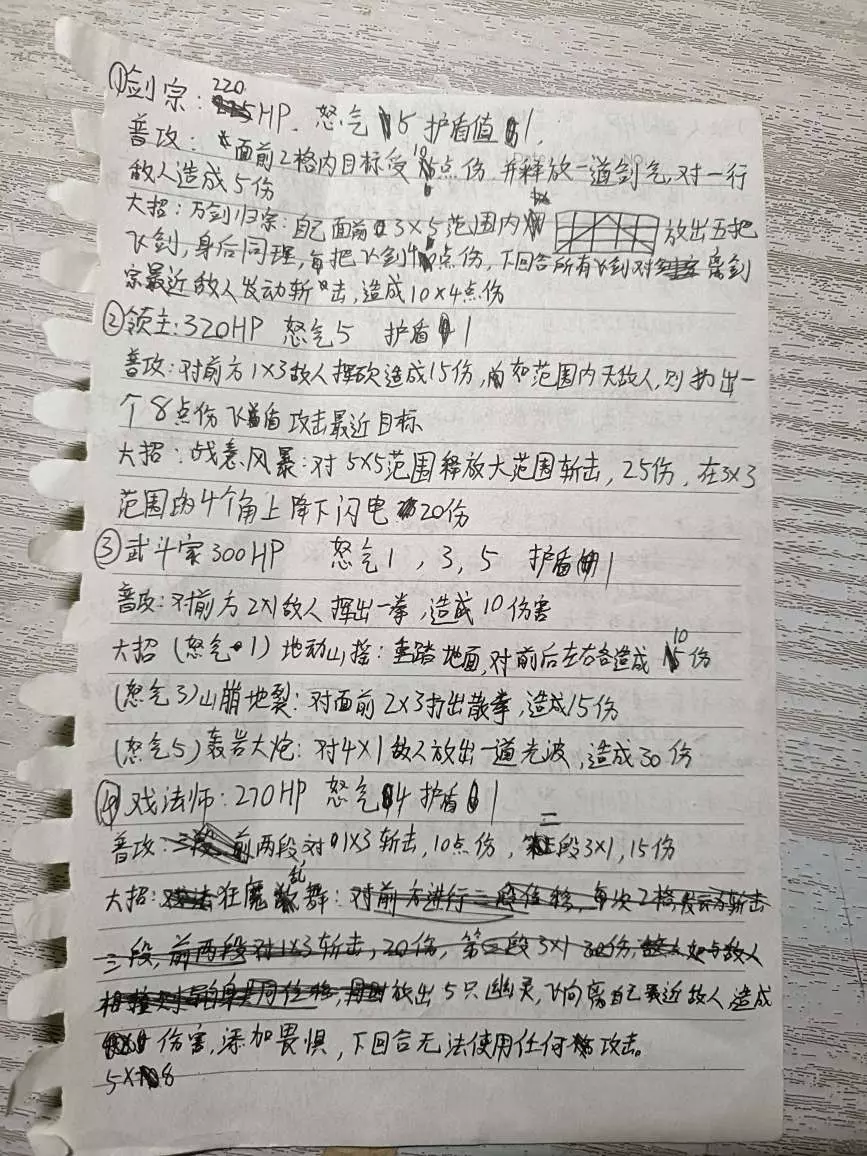 ①剑宗：220HP. 怒气5 护盾值1,
普攻：面前2格内目标受10点伤,并释放一道剑气,对一行
敌人造成5伤
大招：万剑归宗：自己面前3×5范围内 放出五把
飞剑,身后同理,每把飞剑4点伤,下回合所有飞剑对离剑
宗最近敌人发动斩击,造成10×4点伤
②领主:320HP 怒气5 护盾1
普攻:对前方1×3敌人挥砍造成15伤,如范围内无敌人,则扔出一
个8点伤飞盾攻击最近目标
大招：战意风暴:对5×5范围释放大范围斩击,25伤,在3×3
范围的4个角上降下闪电20伤
③武斗家300HP 怒气1,3,5 护盾1
普攻:对前方2×1敌人挥出一拳,造成10伤害
大招(怒气1)地动山摇:重踏地面,对前后左右各造成10伤
(怒气3)山崩地裂:对面前2×3打出散拳,造成15伤
(怒气5)轰岩大炮:对4×1敌人放出一道光波,造成30伤
④戏法师:270HP 怒气4 护盾1
普攻:前两段对1×3斩击,10点伤,第二段3×1,15伤
大招:狂魔乱舞:
放出5只幽灵,飞向离自己最近敌人造成
伤害,添加畏惧,下回合无法使用任何攻击。
5×8